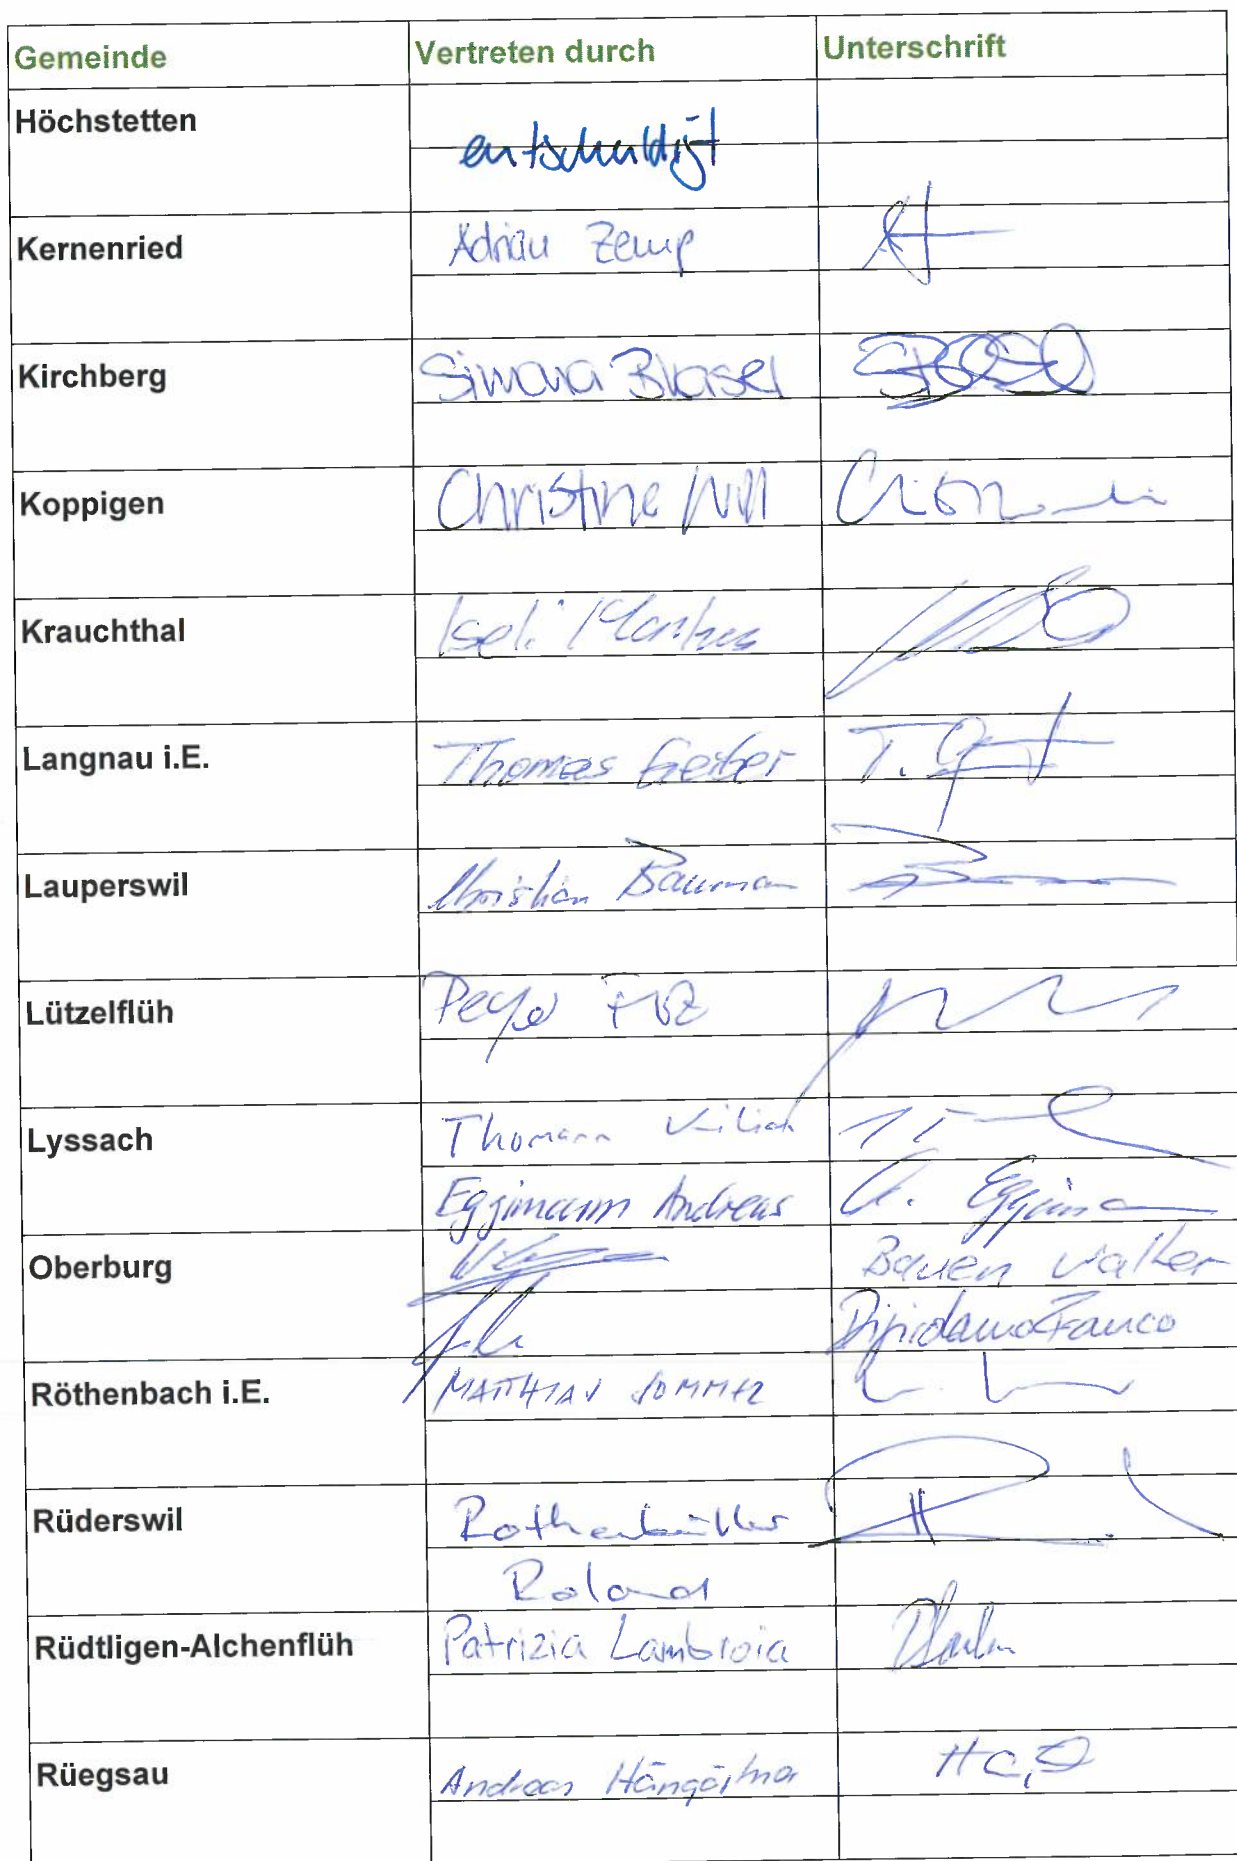 Gemeinde Vertreten durch Unterschrift
Höchstetten entschuldigt
Kernenried Adrian Zemp
Kirchberg Simona Blaser
Koppigen Christine
Krauchthal Iseli Markus
Langnau i.E. Thomas Gerber T.
Lauperswil Christian Bauman
Lützelflüh
Lyssach Thomann Kilian
Eggimann Andreas A. Eggimann
Oberburg Bauen Walter
Franco
Röthenbach i.E. MATTHIAS SOMMER
Rüderswil Rothenbühler
Roland
Rüdtligen-Alchenflüh Patrizia Lambroia
Rüegsau Andreas